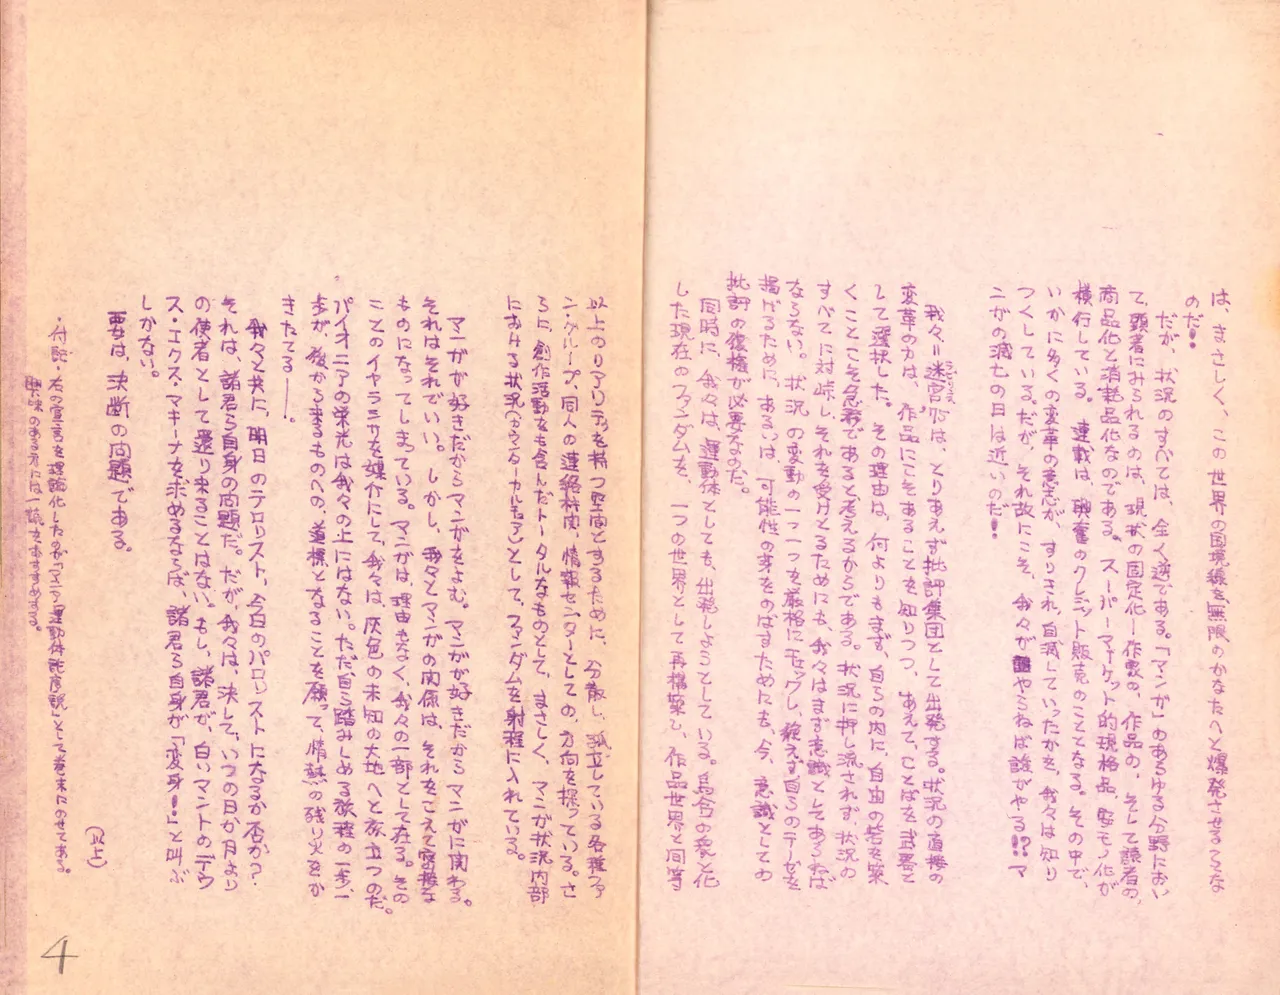 は、まさしく、この世界の国境線を無限のかなたへと爆発させることな
のだ!
だが、状況のすべては、全く逆である。「マンガ」のあらゆる分野におい
て、顕著にみられるのは、現状の固定化―作家の、作品の、そして読者の、
商品化と消耗品化なのである。スーパーマーケット的規格品、駄モノ化が
横行している。連載は、興奮のクレジット販売のこととなる。その中で、
いかに多くの変革の意志が、すりきれ、自滅していったかを、我々は知り
つくしている。だが、それ故にこそ、我々がやらねば誰がやる!?マ
ニガの滅亡の日は近いのだ!
我々=迷宮'75は、とりあえず批評集団として出発する。状況の直接の
変革の力は、作品にこそあることを知りつつ、あえて、ことばを武器と
して選択した。その理由は、何よりもまず、自らの内に、自由の砦を築
くことこそ急務であると考えるからである。状況に押し流されず、状況の
すべてに対峙し、それを受けとるためにも、我々はまず意識としてあらねば
ならない。状況の変動の一つ一つを厳格にチェックし、絶えず自らのテーゼを
掲げるために、あるいは、可能性の芽をのばすためにも、今、意識としての
批評の復権が必要なのだ。
同時に、我々は、運動体としても、出発しようとしている。烏合の衆と化
した現在のファンダムを、一つの世界として再構築し、作品世界と同等
以上のリアリティを持つ空間とするために、分散し、孤立している各種ファ
ン・グループ、同人の連絡機関、情報センターとしての、方向を探っている。さ
らに、創作活動をも含んだトータルなものとして、まさしく、マンガ状況内部
における状況(カウンターカルチュアン)として、ファンダムを射程に入れている。
マンガが好きだからマンガをよむ。マンガが好きだからマンガに関わる。
それはそれでいい。しかし、我々とマンガの関係は、それをこえて密接な
ものになってしまっている。マンガは、理由もなく、我々の一部として在る。その
ことのイヤラシサを媒介にして、我々は、灰色の未知の大地へと旅立つのだ。
パイオニアの栄光は我々の上にはない。ただ、自ら踏みしめる旅程の一歩、一
歩が、後から来るものへの、道標となることを願って、情熱の残り火をか
きたてる――。
我々と共に、明日のテロリスト、今日のパロリストになるか否か?
それは、諸君ら自身の問題だ。だが、我々は、決して、いつの日か月より
の使者として還り来ることはない。もし、諸君が、白いマントのデウ
ス・エクス・マキーナを求めるならば、諸君ら自身が「変身!」と叫ぶ
しかない。
要は、決断の問題である。
(以上)
・付説・右の宣言を理論化したのが「マニア運動体試度説」として巻末にのせてある。
興味のある方には一読をおすすめする。
4